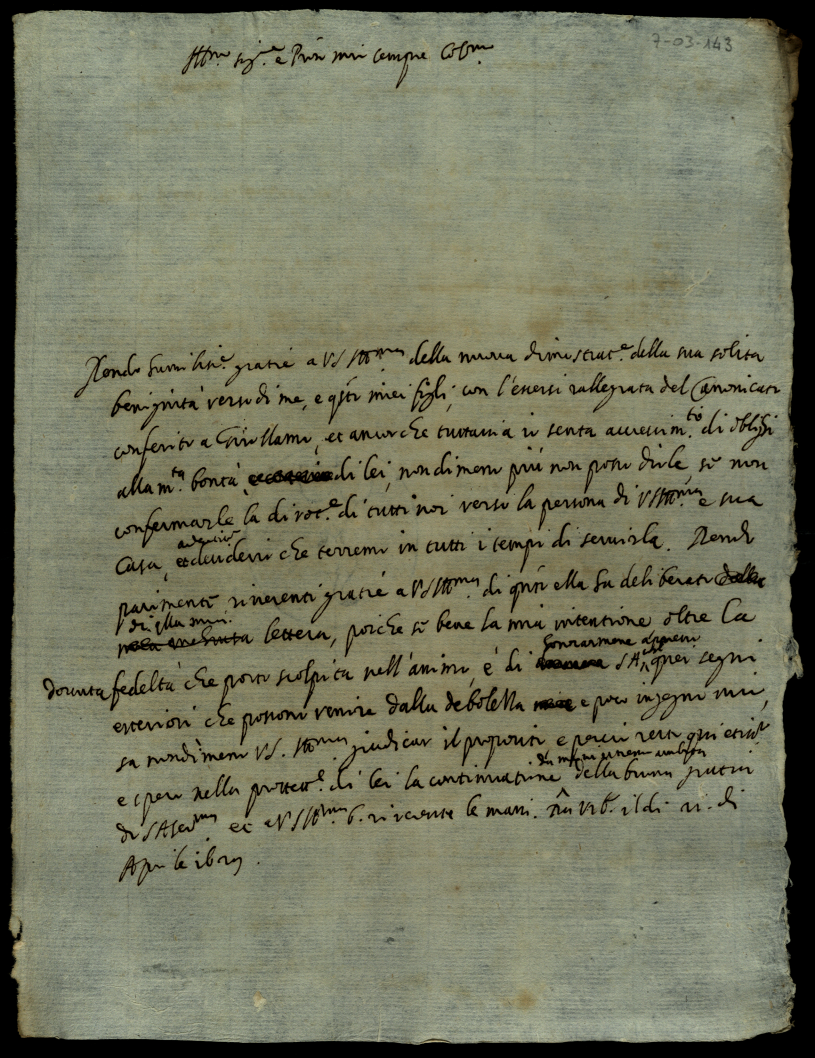 7-03-143
Ill.mo sig.re e Pron mio sempre Col.mo
Rendo humiliss.e gratie a VS Ill.ma della nuova dimostrat.e della sua solita
benignità verso di me, e q.sti miei figli, con l'essersi rallegrata del Canonicato
conferito a Girollamo, et ancor che tuttavia io senta accrescim.to di oblighi
alla m.ta bontà di lei, non dimeno più non posso dirle, se non
confermarle la divot.e di tutti noi verso la persona di VS Ill.ma e sua
Casa, et desiderio che terremo in tutti i tempi di servirla. Rendo
parimente riverenti gratie a VS Ill.ma di q.nto ella ha deliberato della
di q.lla mia
lettera, poiche se bene la mia intentione oltre la
dovuta fedeltà che porto scolpita nell'animo, è di S A quei segni
esteriori che possono venire dalla debolezza e poco ingegno mio,
sa nondimeno VS. Ill.ma giudicar il proposito e perciò resto
e spero nella protett.e di lei la continuatione della buona gratia
di S A Ser.ma et a VS Ill.ma b. riverente le mani. Urb.o il dì 11. di
Aprile